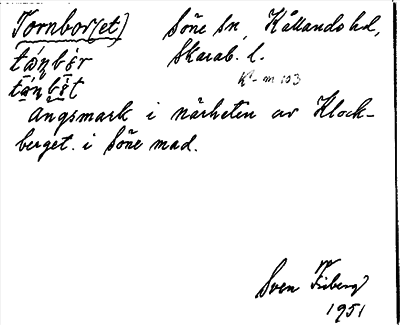 Tornbor(et) Söne sn, Kållands hd,
Skarab. l.
Kl-m 103
ängsmark i närheten av Klock-
berget i Söne mad.
Sven Friberg
1951